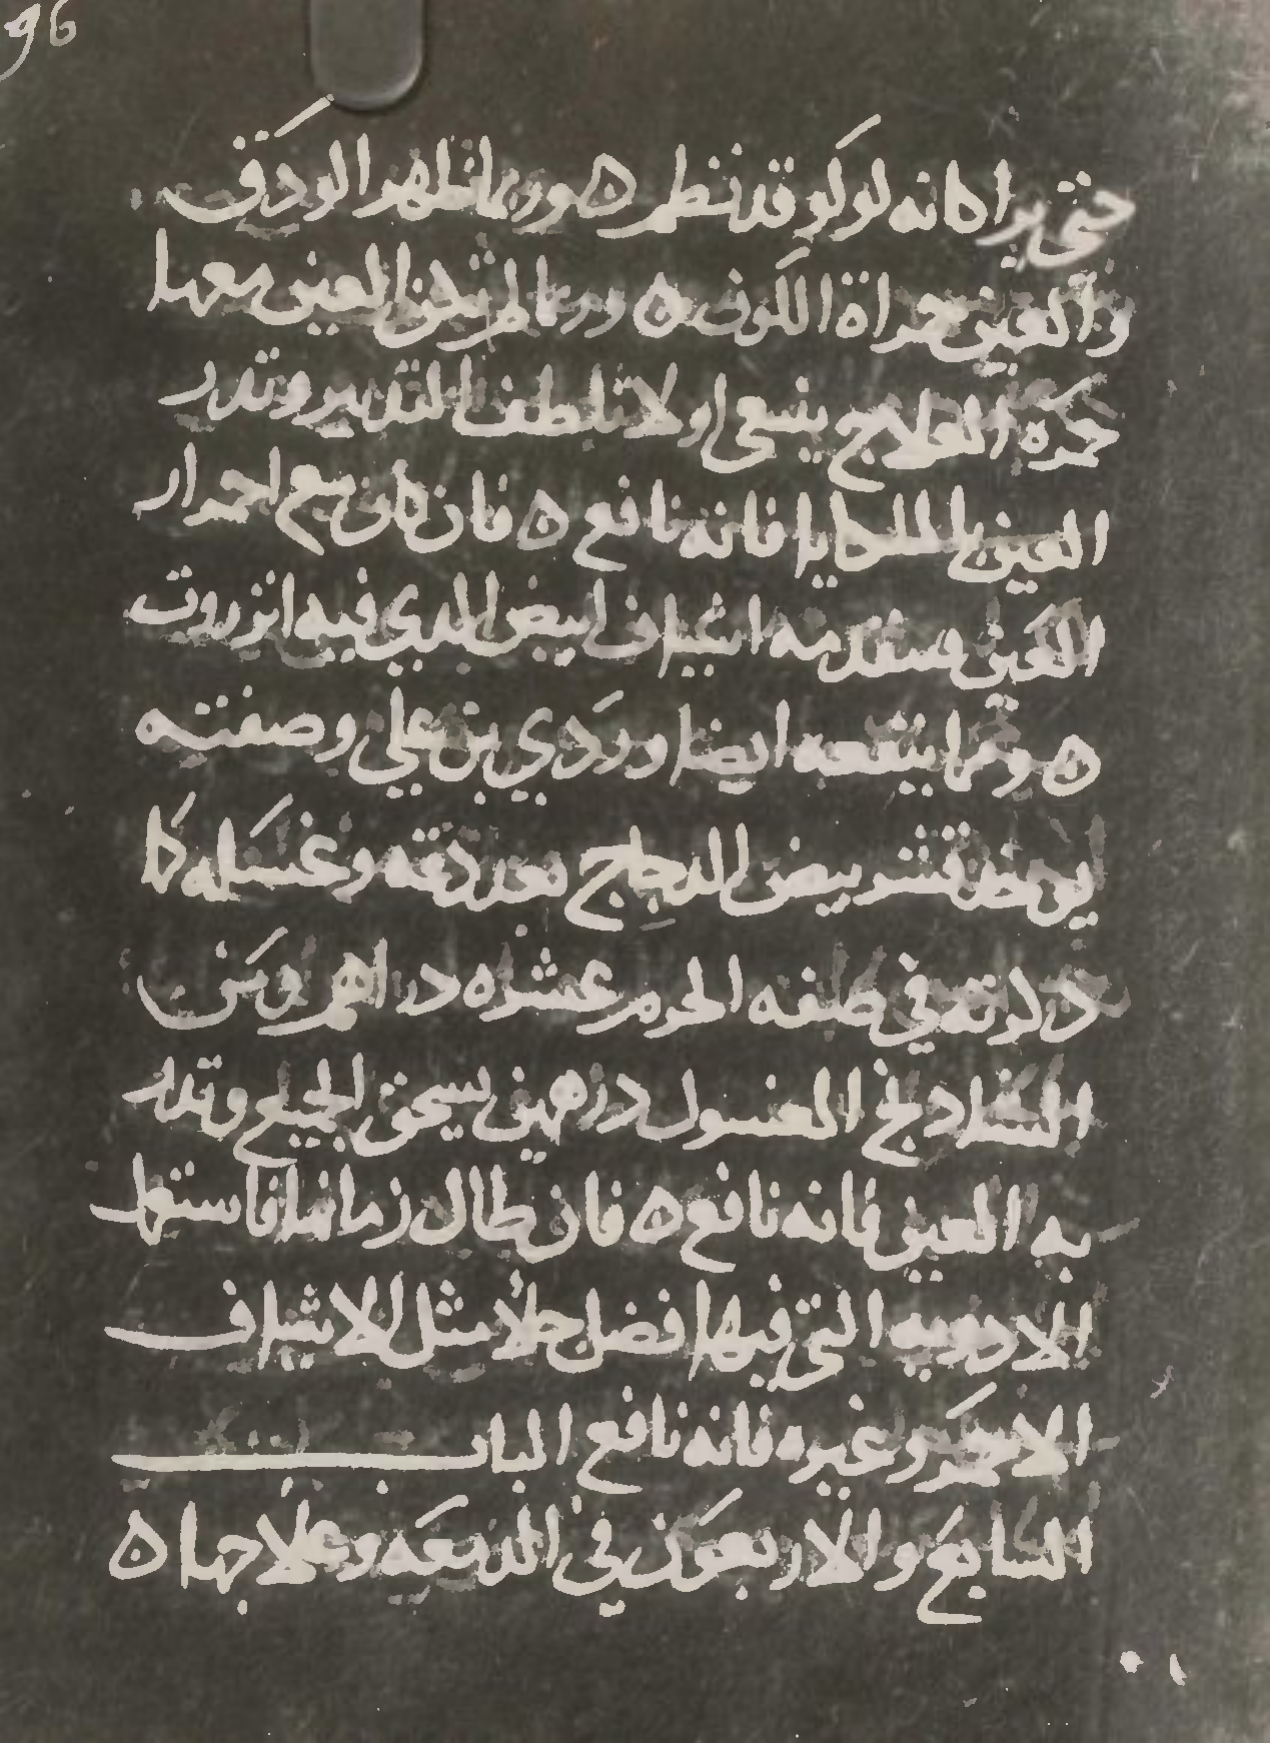 96
حتى يرا كانه لولو قد نظر ٥ وربما ظهر الودقه
والعين حمراة اللون ٥ وربما لم تكن العين معها
حمره العلاج ينبغي اولا تلطف التدبير وتدر
العين بالملكايا فانه نافع ٥ فان كان مع احمرار
العين اشياف ابيض الدي فيه انزروت
٥ ومما ينفعه ايضا وردي بن علي وصفته
يوخذ قشر بيض الدجاج بعد دقه وغسله كا
ذكرته في صفه الحرم عشره دراهم ومن
الشادنج المغسول درهمين يسحق الجميع وتدر
به العين فانه نافع ٥ فان طال زمانها فاستعمل
الادويه التي فيها افضل جلا مثل الاشياف
الاحمر وغيره فانه نافع الباب
السابع والاربعون في الدمعه وعلاجها ٥